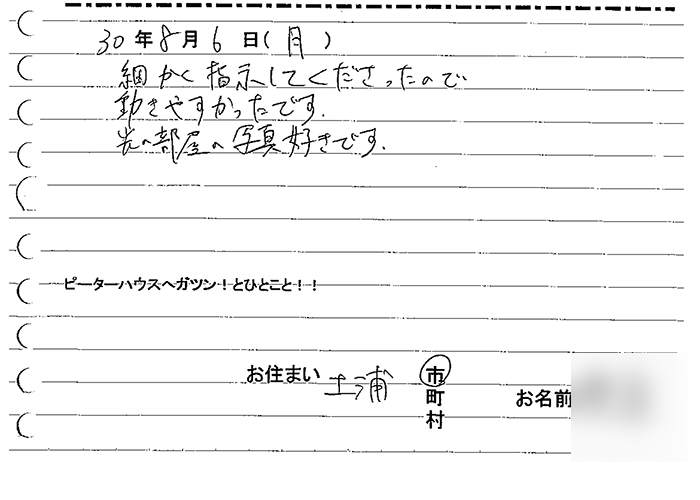 30年8月6日(月)
細かく指示してくださったので
動きやすかったです.
光の部屋の写真好きです.
ピーターハウスへガツン！とひとこと！！
お住まい 土浦 市
町
村
お名前